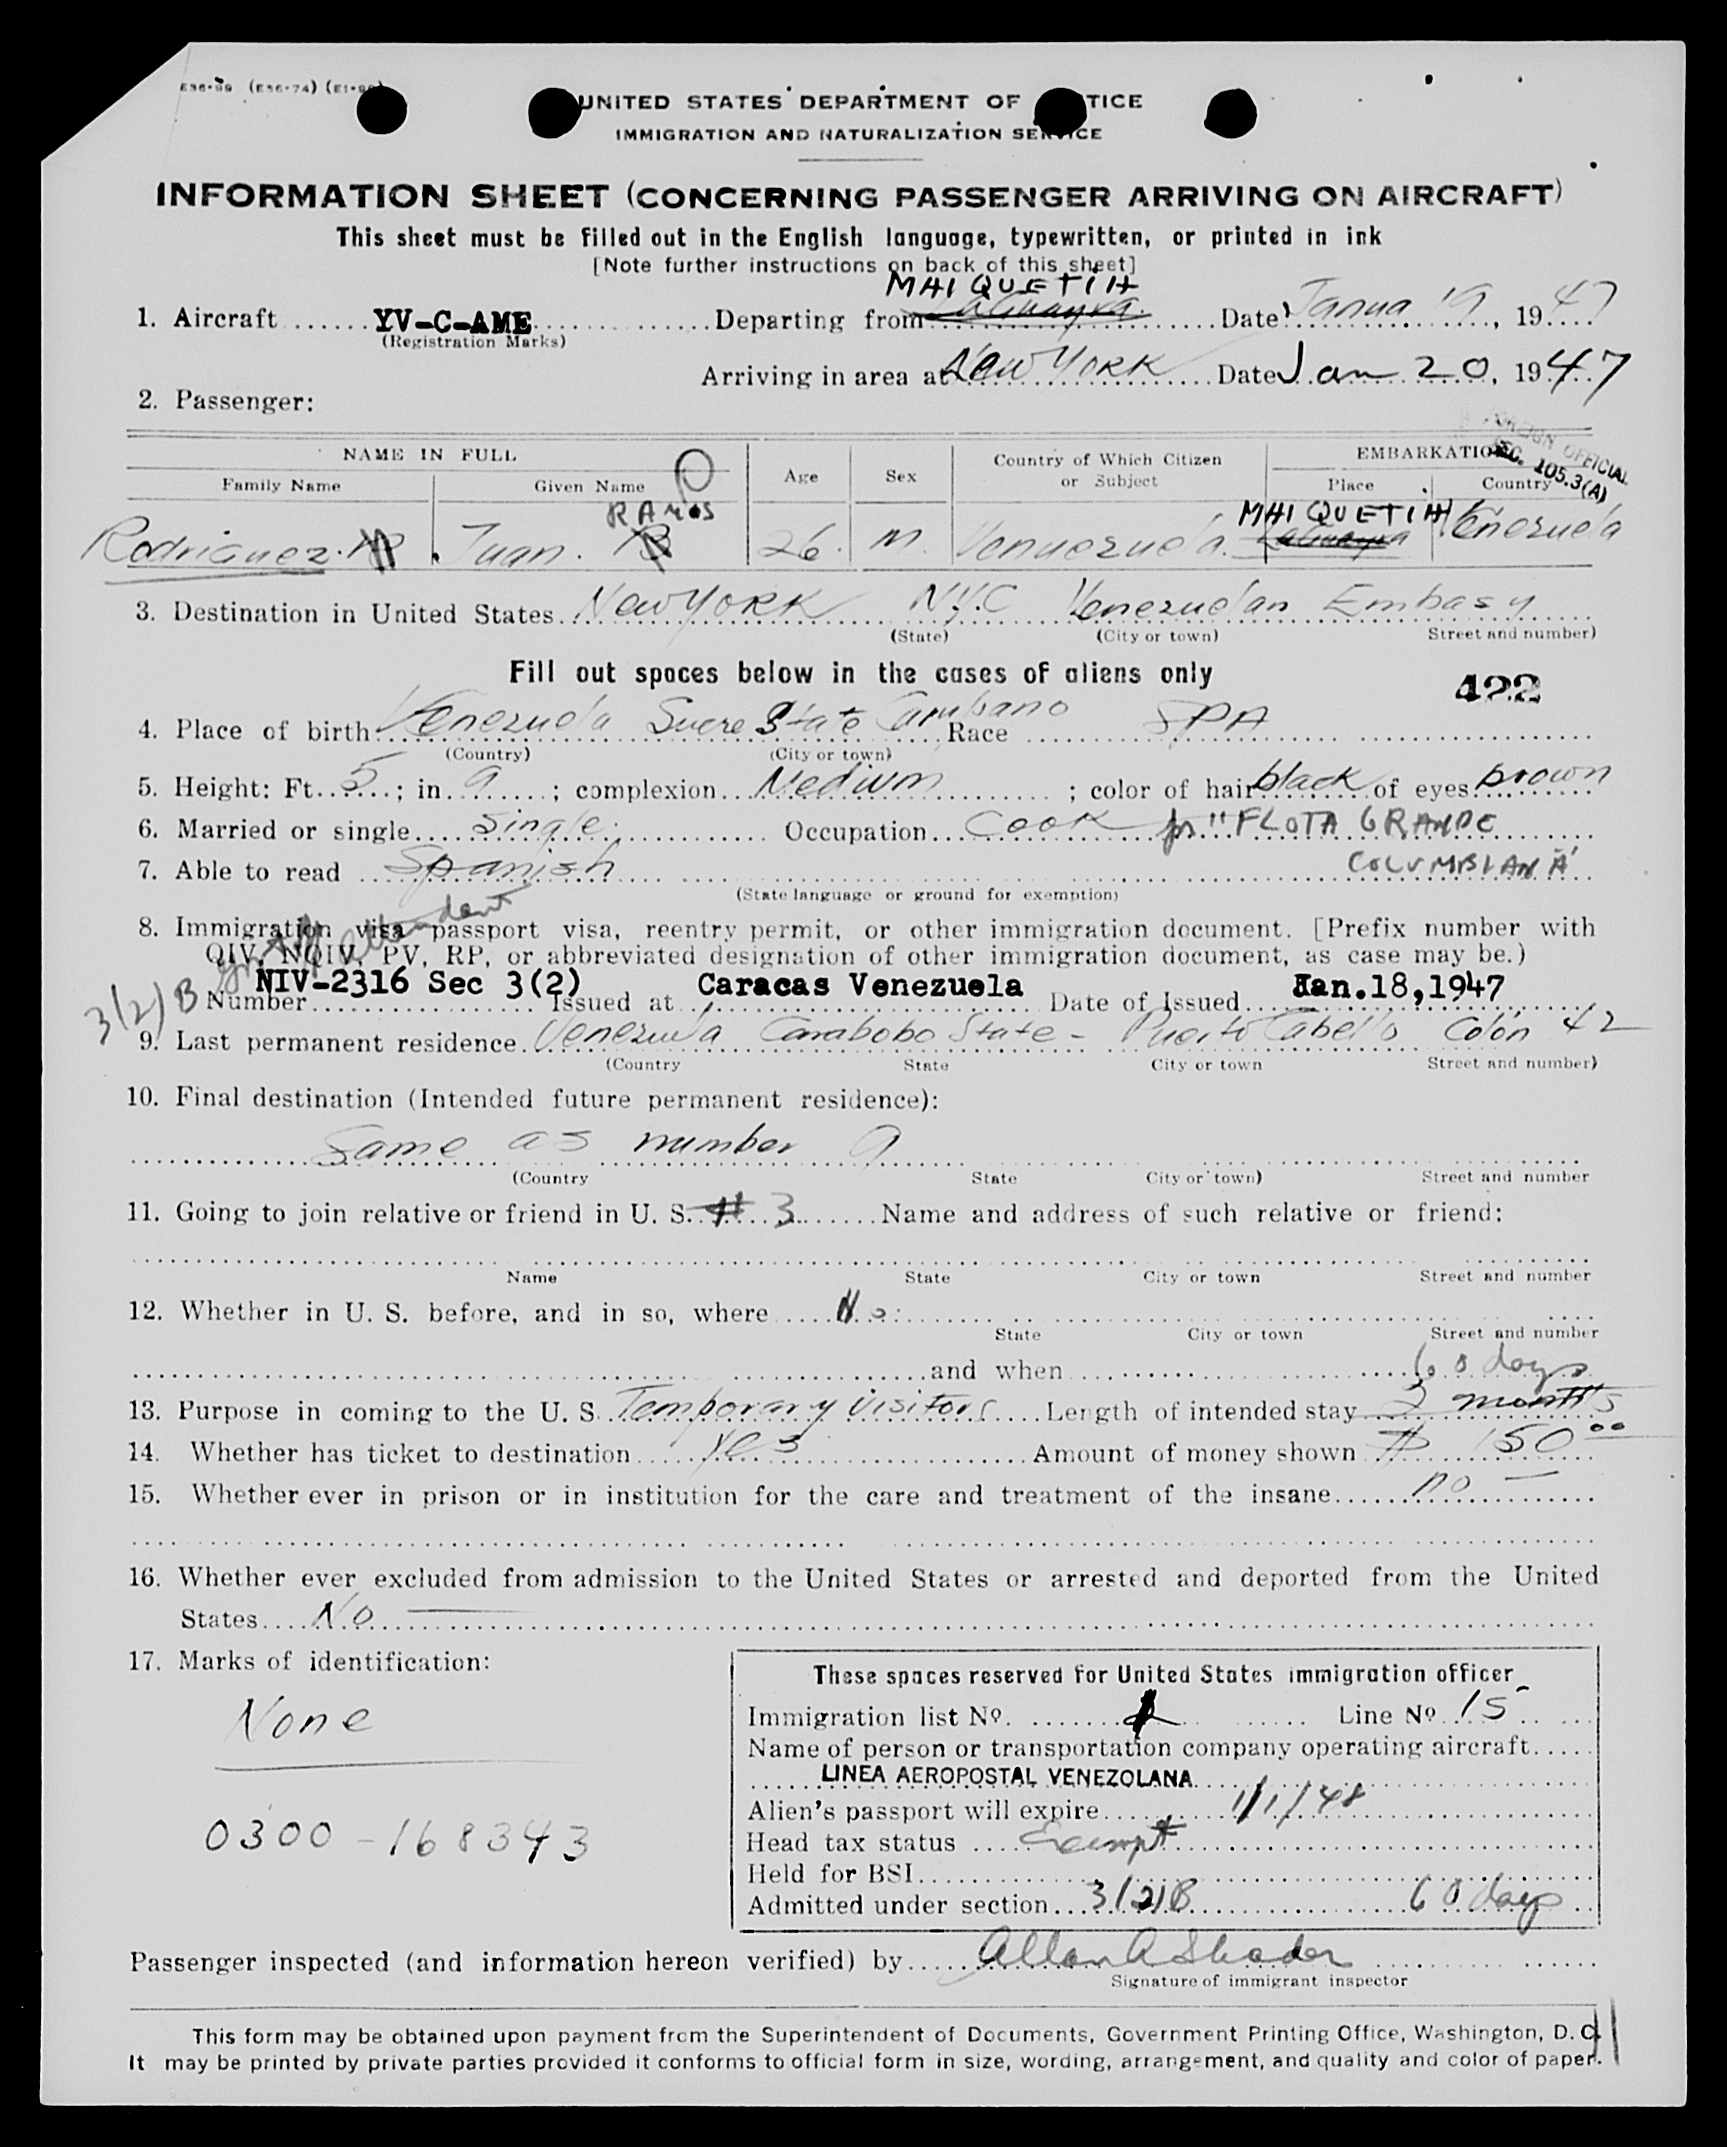 UNITED STATES DEPARTMENT OF TICE
IMMIGRATION AND NATURALIZATION SERVICE
INFORMATION SHEET (CONCERNING PASSENGER ARRIVING ON AIRCRAFT)
This sheet must be filled out in the English language, typewritten, or printed in ink
[Note further instructions on back of this sheet]
MAIQUETIA
1. Aircraft YV-C-AME Departing from La Guayra Date Janua 19, 1947
(Registration Marks)
Arriving in area at New York Date Jan 20, 1947
2. Passenger:
FOREIGN OFFICIAL
SEC. 105.3(A)
NAME IN FULL Age Sex Country of Which Citizen or Subject EMBARKATION
Family Name Given Name Place Country
RAMOS MAIQUETIA
Rodriguez Juan. 26 M. Venuezuela. La Guayra Venezuela
3. Destination in United States New York N.Y.C Venezuelan Embasy
(State) (City or town) Street and number)
Fill out spaces below in the cases of aliens only
422
4. Place of birth Venezuela Sucre State Race SPA
(Country) (City or town)
5. Height: Ft. 5; in. 9; complexion Medium; color of hair black of eyes brown
6. Married or single single. Occupation Cook for "FLOTA GRANDE
COLUMBIANA"
7. Able to read Spanish
(State language or ground for exemption)
8. Immigration visa passport visa, reentry permit, or other immigration document. [Prefix number with
QIV, NQIV, PV, RP, or abbreviated designation of other immigration document, as case may be.)
3(2)B
Number NIV-2316 Sec 3(2) Issued at Caracas Venezuela Date of Issued Jan.18,1947
9. Last permanent residence Venezuela Carabobo State - Puerto Cabello Colón 42
(Country State City or town Street and number)
10. Final destination (Intended future permanent residence):
Same as number 9
(Country State City or town) Street and number
11. Going to join relative or friend in U. S. # 3 Name and address of such relative or friend:
Name State City or town Street and number
12. Whether in U. S. before, and in so, where No.
State City or town Street and number
and when
60 days
13. Purpose in coming to the U. S. Temporary visitors Length of intended stay 2 months
14. Whether has ticket to destination Yes Amount of money shown $ 150.00
15. Whether ever in prison or in institution for the care and treatment of the insane no —
16. Whether ever excluded from admission to the United States or arrested and deported from the United
States No
17. Marks of identification:
None
0300-168343
These spaces reserved for United States immigration officer
Immigration list No. Line No. 15
Name of person or transportation company operating aircraft
LINEA AEROPOSTAL VENEZOLANA
Alien's passport will expire 1/1/48
Head tax status Exempt
Held for BSI
Admitted under section 3(2)B 60 days
Passenger inspected (and information hereon verified) by Allan A Shader
Signature of immigrant inspector
This form may be obtained upon payment from the Superintendent of Documents, Government Printing Office, Washington, D. C.
It may be printed by private parties provided it conforms to official form in size, wording, arrangement, and quality and color of paper.